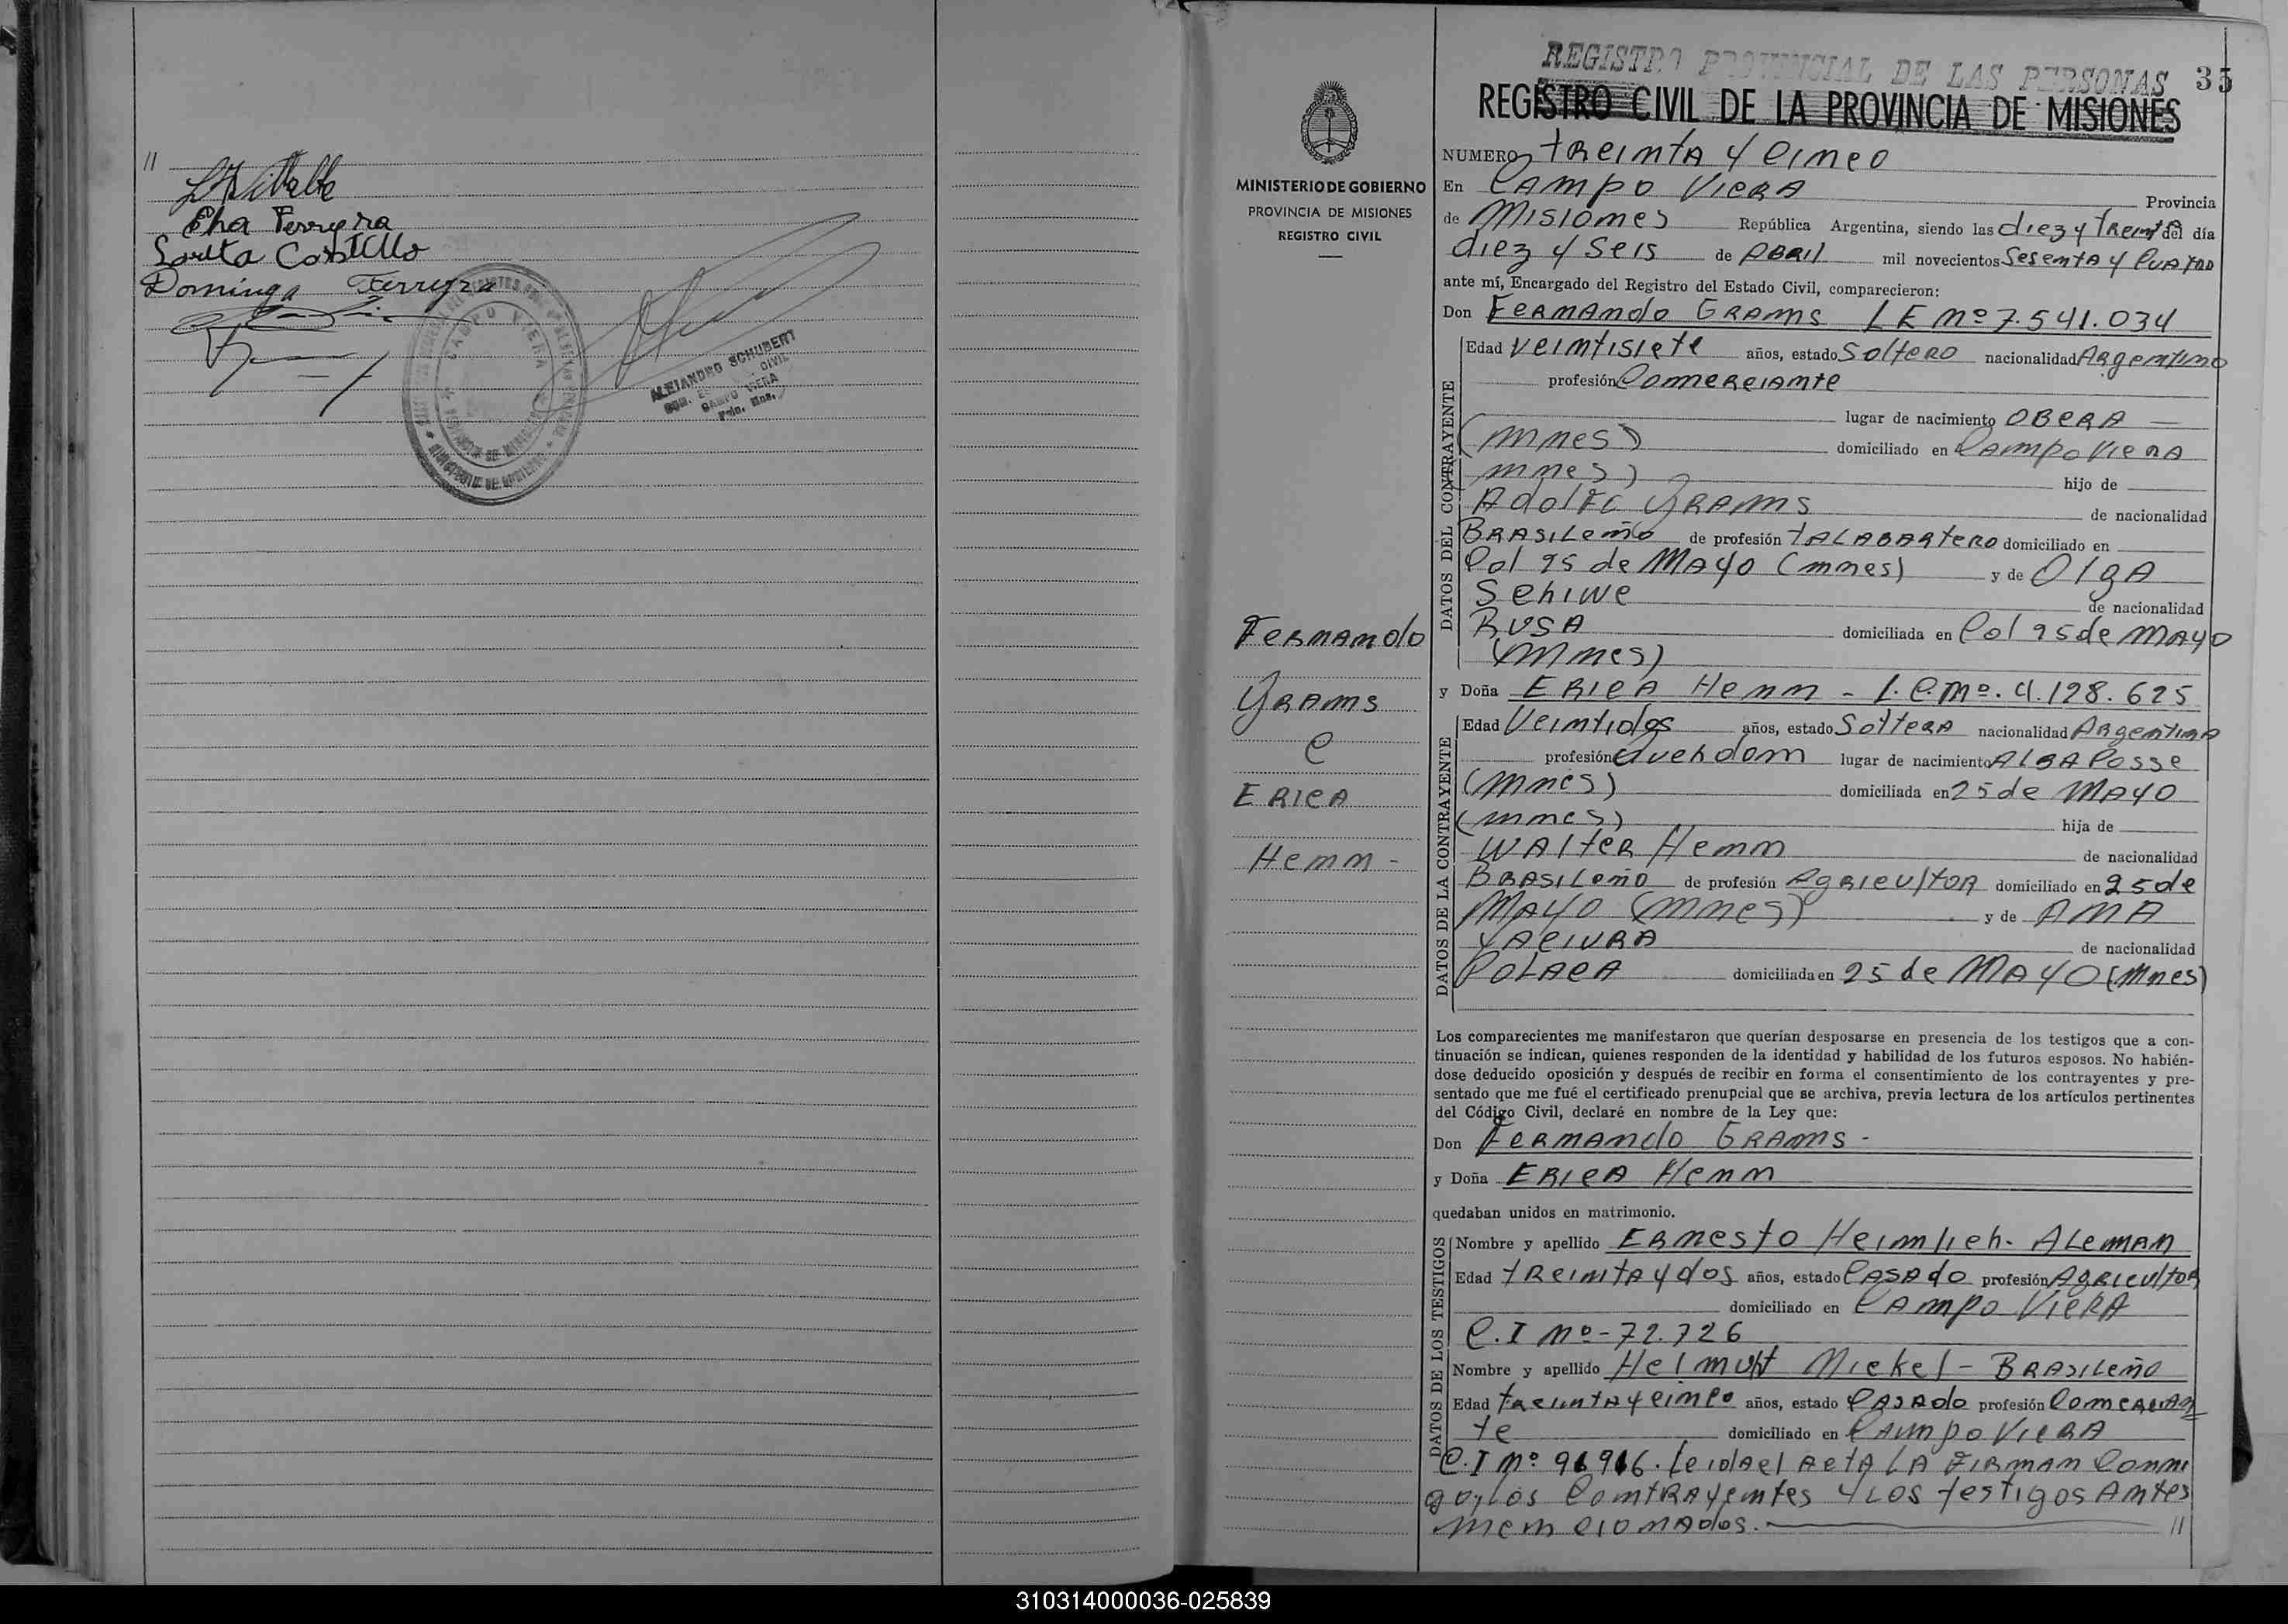 //
Elsa Ferreyra
Sarita Castillo
Dominga Ferreyra
CAMPO VIERA
ALEJANDRO SCHUBERT
CIVIL
CAMPO VIERA
MINISTERIO DE GOBIERNO
PROVINCIA DE MISIONES
REGISTRO CIVIL
Fernando
Grams
e
Erica
Henn -
REGISTRO PROVINCIAL DE LAS PERSONAS 35
REGISTRO CIVIL DE LA PROVINCIA DE MISIONES
NUMERO treinta y cinco
En Campo Viera Provincia
de Misiones República Argentina, siendo las diez y Treinta del día
diez y seis de Abril mil novecientos Sesenta y Cuatro
ante mí, Encargado del Registro del Estado Civil, comparecieron:
Don Fernando Grams LE Nº 7.541.034
DATOS DEL CONTRAYENTE
Edad veintisiete años, estado Soltero nacionalidad Argentino
profesión Comerciante
lugar de nacimiento OBERA
(mnes) domiciliado en Campo Viera
(mnes) hijo de
Adolfo Grams de nacionalidad
Brasileño de profesión talabartero domiciliado en
Col 25 de Mayo (mnes) y de Olga
Schiwe de nacionalidad
Rusa domiciliada en Col 25 de Mayo
(mnes)
y Doña Erica Henn - L.C. Nº. 4.128.625
DATOS DE LA CONTRAYENTE
Edad Veintidos años, estado Soltera nacionalidad Argentina
profesión Quehdom lugar de nacimiento Alba Posse
(mnes) domiciliada en 25 de Mayo
(mnes) hija de
Walter Henn de nacionalidad
Brasileño de profesión Agricultor domiciliado en 25 de
Mayo (mnes) y de Ana
Yaciura de nacionalidad
Polaca domiciliada en 25 de Mayo (mnes)
Los comparecientes me manifestaron que querían desposarse en presencia de los testigos que a con-
tinuación se indican, quienes responden de la identidad y habilidad de los futuros esposos. No habién-
dose deducido oposición y después de recibir en forma el consentimiento de los contrayentes y pre-
sentado que me fué el certificado prenupcial que se archiva, previa lectura de los artículos pertinentes
del Código Civil, declaré en nombre de la Ley que:
Don Fernando Grams -
y Doña Erica Henn
quedaban unidos en matrimonio.
DATOS DE LOS TESTIGOS
Nombre y apellido Ernesto Heimlich - Aleman
Edad treinta y dos años, estado Casado profesión Agricultor
domiciliado en Campo Viera
C.I Nº - 72.726
Nombre y apellido Helmut Nickel - Brasileño
Edad treinta y cinco años, estado Casado profesión Comercian
te domiciliado en Campo Viera
C.I Nº 96916. Leida el Acta la firman Conmi
go, los Contrayentes y los testigos Antes
mencionados. //
310314000036-025839